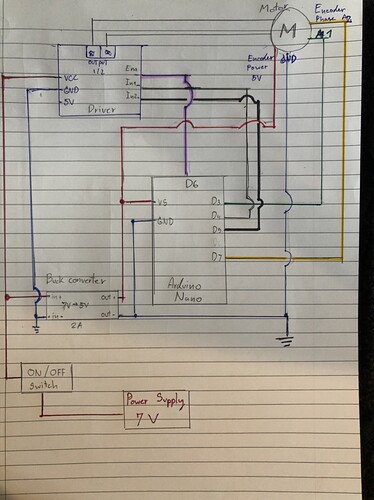 Motor
Encoder
Phase A2
A1
M
OUTPUT
1/2
Encoder
Power
5V
GND
VCC
GND
5V
En
In1
In2
Driver
D6
V5
GND
D3
D4
D5
D7
Arduino
Nano
Buck converter
in+
7V→5V
out+
in-
out-
2A
ON/OFF
switch
Power Supply
7V